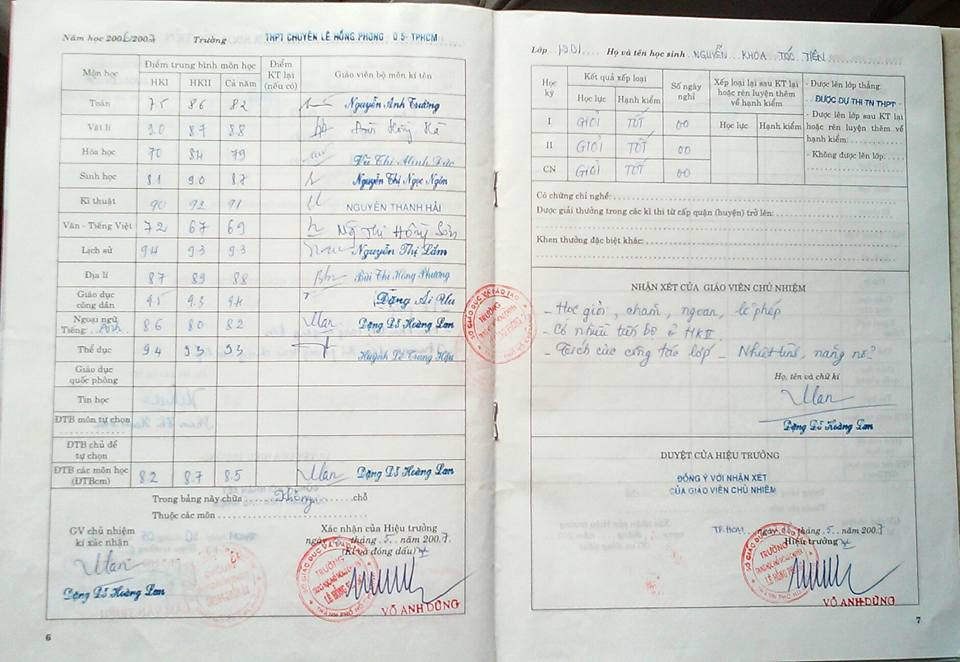 Năm học 2006/2007 Trường THPT CHUYÊN LÊ HỒNG PHONG Q5-TPHCM
Môn học Điểm trung bình môn học Điểm KT lại (nếu có) Giáo viên bộ môn kí tên
HKI HKII Cả năm
Toán 7.5 8.6 8.2 Nguyễn Anh Trường
Vật lí 9.0 8.7 8.8
Hóa học 7.0 8.4 7.9 Vũ Thị Minh Đức
Sinh học 8.1 9.0 8.7 Nguyễn Thị Ngọc Ngôn
Kĩ thuật 9.0 9.2 9.1 NGUYỄN THANH HẢI
Văn - Tiếng Việt 7.2 6.7 6.9 Ng Thị Hồng Sơn
Lịch sử 9.4 9.3 9.3 Nguyễn Thị Lắm
Địa lí 8.7 8.9 8.8 Bùi Thị Hồng Phương
Giáo dục công dân 9.5 9.3 9.4 Đặng Ái
Ngoại ngữ Tiếng: Anh 8.6 8.0 8.2 Đặng Đỗ Hoàng Lan
Thể dục 9.4 9.3 9.3 Huỳnh Lê Trung Hậu
Giáo dục quốc phòng
Tin học
ĐTB môn tự chọn
ĐTB chủ đề tự chọn
ĐTB các môn học (ĐTBcm) 8.2 8.7 8.5 Đặng Đỗ Hoàng Lan
Trong bảng này chữa Không chỗ
Thuộc các môn
GV chủ nhiệm kí xác nhận
Đặng Đỗ Hoàng Lan
Xác nhận của Hiệu trưởng
ngày tháng 5 năm 2007
(Kí và đóng dấu)
SỞ GIÁO DỤC VÀ ĐÀO TẠO
TRƯỜNG
LÊ HỒNG PHONG
VÕ ANH DŨNG
6
Lớp Họ và tên học sinh NGUYỄN KHOA TÓC TIÊN
Học kỳ Kết quả xếp loại Số ngày nghỉ Xếp loại lại sau KT lại hoặc rèn luyện thêm về hạnh kiểm
Học lực Hạnh kiểm Học lực Hạnh kiểm
I GIỎI TỐT 00
II GIỎI TỐT 00
CN GIỎI TỐT 00
- Được lên lớp thẳng:
ĐƯỢC DỰ THI TN THPT
- Được lên lớp sau KT lại hoặc rèn luyện thêm về hạnh kiểm:
- Không được lên lớp:
Có chứng chỉ nghề:
Được giải thưởng trong các kì thi từ cấp quận (huyện) trở lên:
Khen thưởng đặc biệt khác:
NHẬN XÉT CỦA GIÁO VIÊN CHỦ NHIỆM
- Học giỏi, chăm, ngoan, lễ phép
- Có nhiều tiến bộ ở HKII
- Tích cực công tác lớp - Nhiệt tình, năng nổ
Họ, tên và chữ kí
Đặng Đỗ Hoàng Lan
DUYỆT CỦA HIỆU TRƯỞNG
ĐỒNG Ý VỚI NHẬN XÉT
CỦA GIÁO VIÊN CHỦ NHIỆM
TP.HCM ngày tháng 5 năm 2007
Hiệu trưởng
TRƯỜNG
LÊ HỒNG PHONG
VÕ ANH DŨNG
7